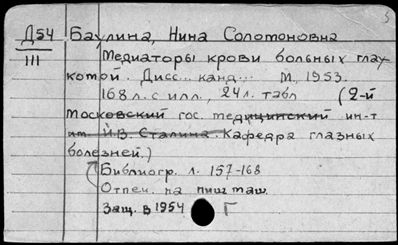 Д54 Баулина, Нина Соломоновна
III Медиаторы крови больных глау-
комой. Дисс... канд... М., 1953.
168 л. с илл., 24 л. табл (2-й
Московский гос. медицинский ин-т
им. И.В. Сталина. Кафедра глазных
болезней.)
Библиогр. л. 157-168
Отпеч. на пиш. маш.
Защ. в 1954 Г